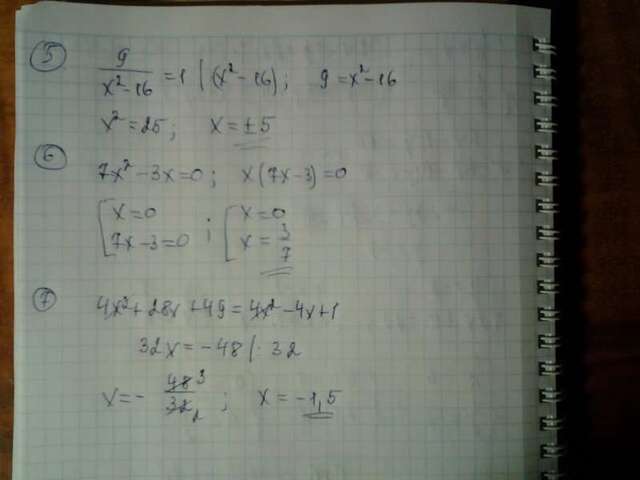 5 9/(x²-16) = 1 | (x²-16); 9 = x²-16
x² = 25; x = ±5
6 7x² - 3x = 0; x(7x-3) = 0
[x = 0 ; [x = 0
7x-3 = 0 x = 3/7
7 4x² + 28x + 49 = 4x² - 4x + 1
32x = -48 | : 32
x = - 48 3/32 2; x = -1,5